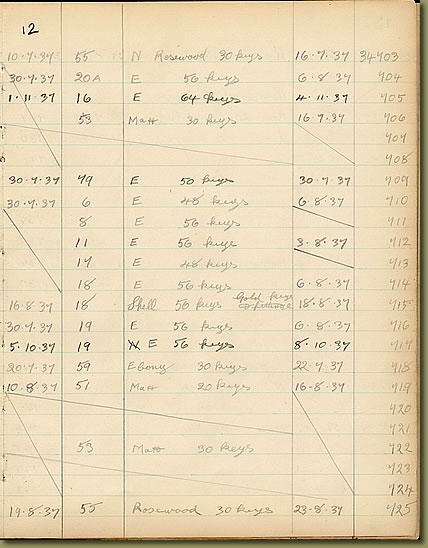 12
10.7.37 55 N Rosewood 30 keys 16.7.37 34703
30.7.37 20A E 56 keys 6.8.37 704
1.11.37 16 E 64 keys 4.11.37 705
53 Matt 30 keys 16.7.37 706
707
708
30.7.37 79 E 50 keys 30.7.37 709
30.7.37 6 E 48 keys 6.8.37 710
8 E 56 keys 711
11 E 56 keys 3.8.37 712
17 E 48 keys 713
18 E 56 keys 6.8.37 714
16.8.37 18 Shell 56 keys Gold keys & fittings 18.8.37 715
30.7.37 19 E 56 keys 6.8.37 716
5.10.37 19 N E 56 keys 8.10.37 717
20.7.37 59 Ebony 30 keys 22.7.37 718
10.8.37 51 Matt 20 keys 16-8.37 719
720
721
53 Matt 30 keys 722
723
724
19.8.37 55 Rosewood 30 keys 23.8.37 725